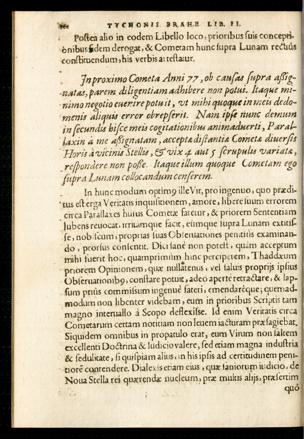 TYCHONIS BRAHE LIB. II.
Postea alio in eodem Libello loco, prioribus suis concepti-
onibus fidem derogat, & Cometam hunc supra Lunam rectius
constituendum, his verbis attestatur.
In proximo Cometa Anni 77, ob causas supra assig-
natas, parem diligentiam adhibere non potui. Itaque mi-
nimo negotio evenire potuit, ut mihi quoque in meis dedo-
menis aliquis error obrepserit. Nam ipse nunc demum
in secundis hisce meis cogitationibus animadverti, Paral-
laxin à me assignatam, accepta distantia Cometæ diversis
Horis à vicinis Stellis, & vix 4 aut 5 scrupulis variata,
respondere non posse. Itaque illum quoque Cometam ego
supra Lunam collocandum censerem.
In hunc modum optimus ille Vir, pro ingenuo, quo prædi-
tus est erga Veritatis inquisitionem, amore, libere suum errorem
circa Parallaxes huius Cometæ fatetur, & priorem Sententiam
Iubens revocat, irritamque facit, eumque supra Lunam extitis-
se, nobiscum, propriis suis Observationes penitius examinan-
do, prorsus consentit. Dici sane non potest, quam acceptum
mihi fuerit hoc, quamprimum hinc perciperem, Thaddæum
priorem Opinionem, quæ nullatenus, vel saltus propriis ipsius
Observationibus, constare potuit, adeo aperte retractare, & lap-
sum prius commissum ingenue fateri, emendareque; quemad-
modum non libenter videbam, eum in prioribus Scriptis tam
magno intervallo à Scopo deflexisse. Id enim Veritati circa
Cometarum certam notitiam non levem iacturam præsagiebat.
Siquidem omnibus in propatulo erat, eum Virum non saltem
excellenti Doctrina & Iudicio valere, sed etiam magna industria
& sedulitate, si quispiam alius, in his ipsis ad certitudinem peni-
tiorē comprendere. Dialexis etiam eius, quæ saniorum iudicio, de
Nova Stella rei quærendæ nucleum, præ multis alijs, præsertim
quò